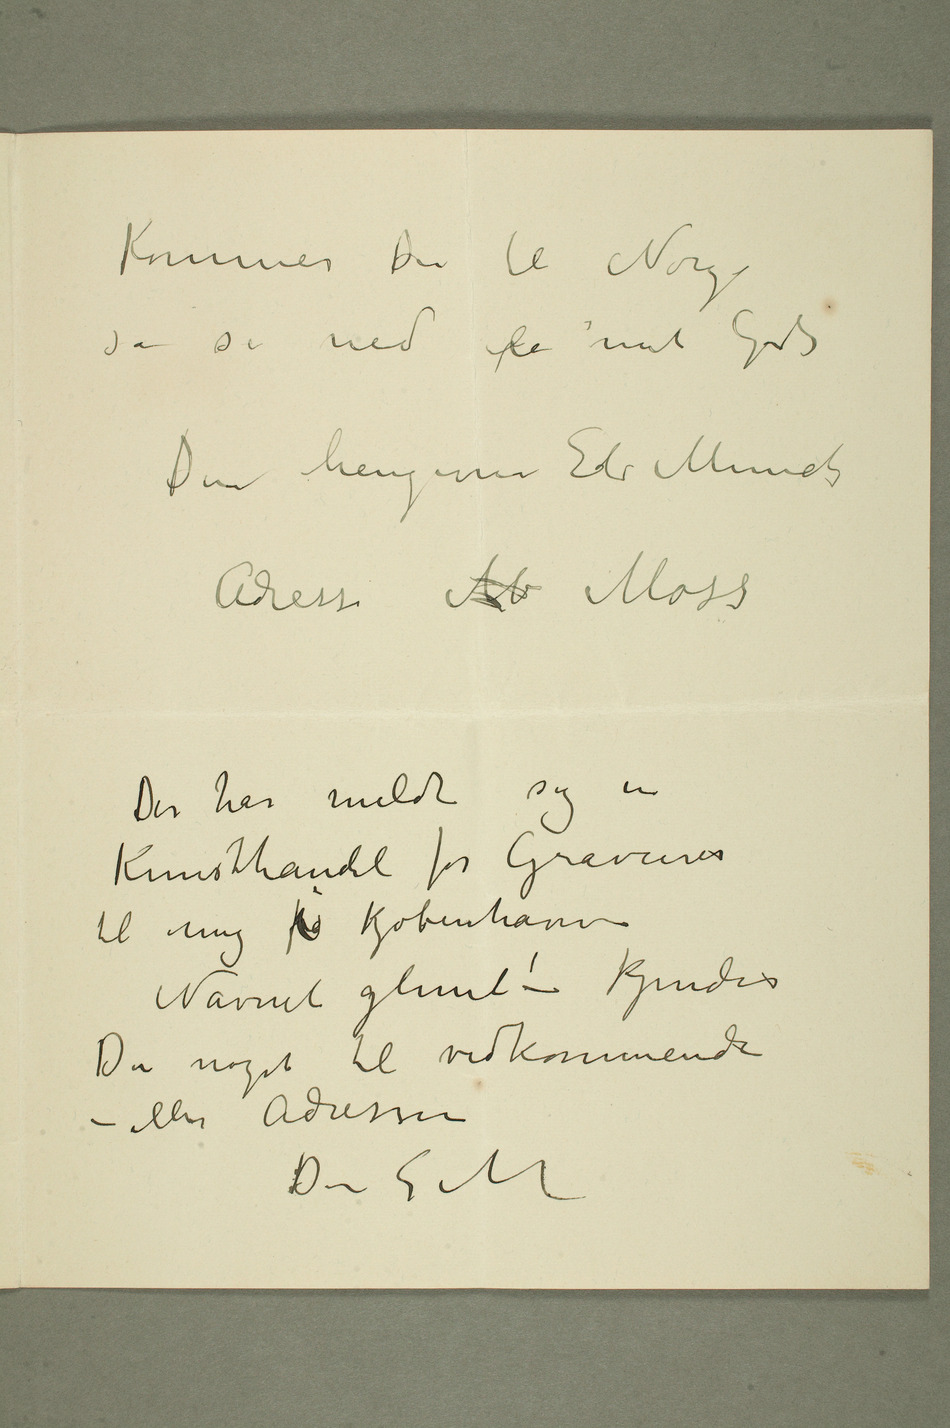 Kommer Du til Norge
så se ned på mit Gods
Din hengivne Edv Munch
Adresse Moss
Der har meldt sig en
Kunsthandel for Gravurer
til mig fra Kjøbenhavn
Navnet glemt! – Kjender
Du noget til vedkommende
– eller Adressen
Din E M